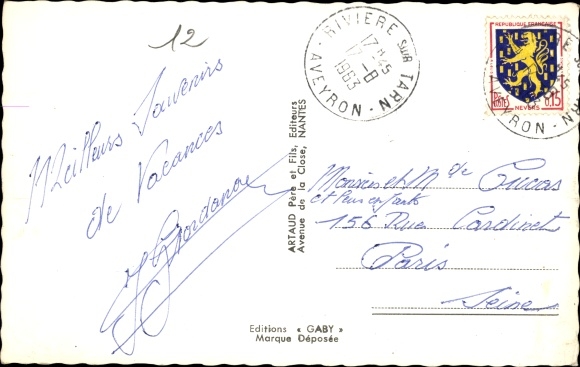 12
Meilleurs Souvenirs
de Vacances
RIVIERE SUR TARN
17H45
17-8
1963
AVEYRON
REPUBLIQUE FRANÇAISE
POSTES
0,15
NEVERS
AVEYRON
ARTAUD Père et Fils, Editeurs
Avenue de la Close, NANTES
Monsieur et Mde
et leurs enfants
156 Rue Cardinet
Paris
Seine
Editions « GABY »
Marque Déposée